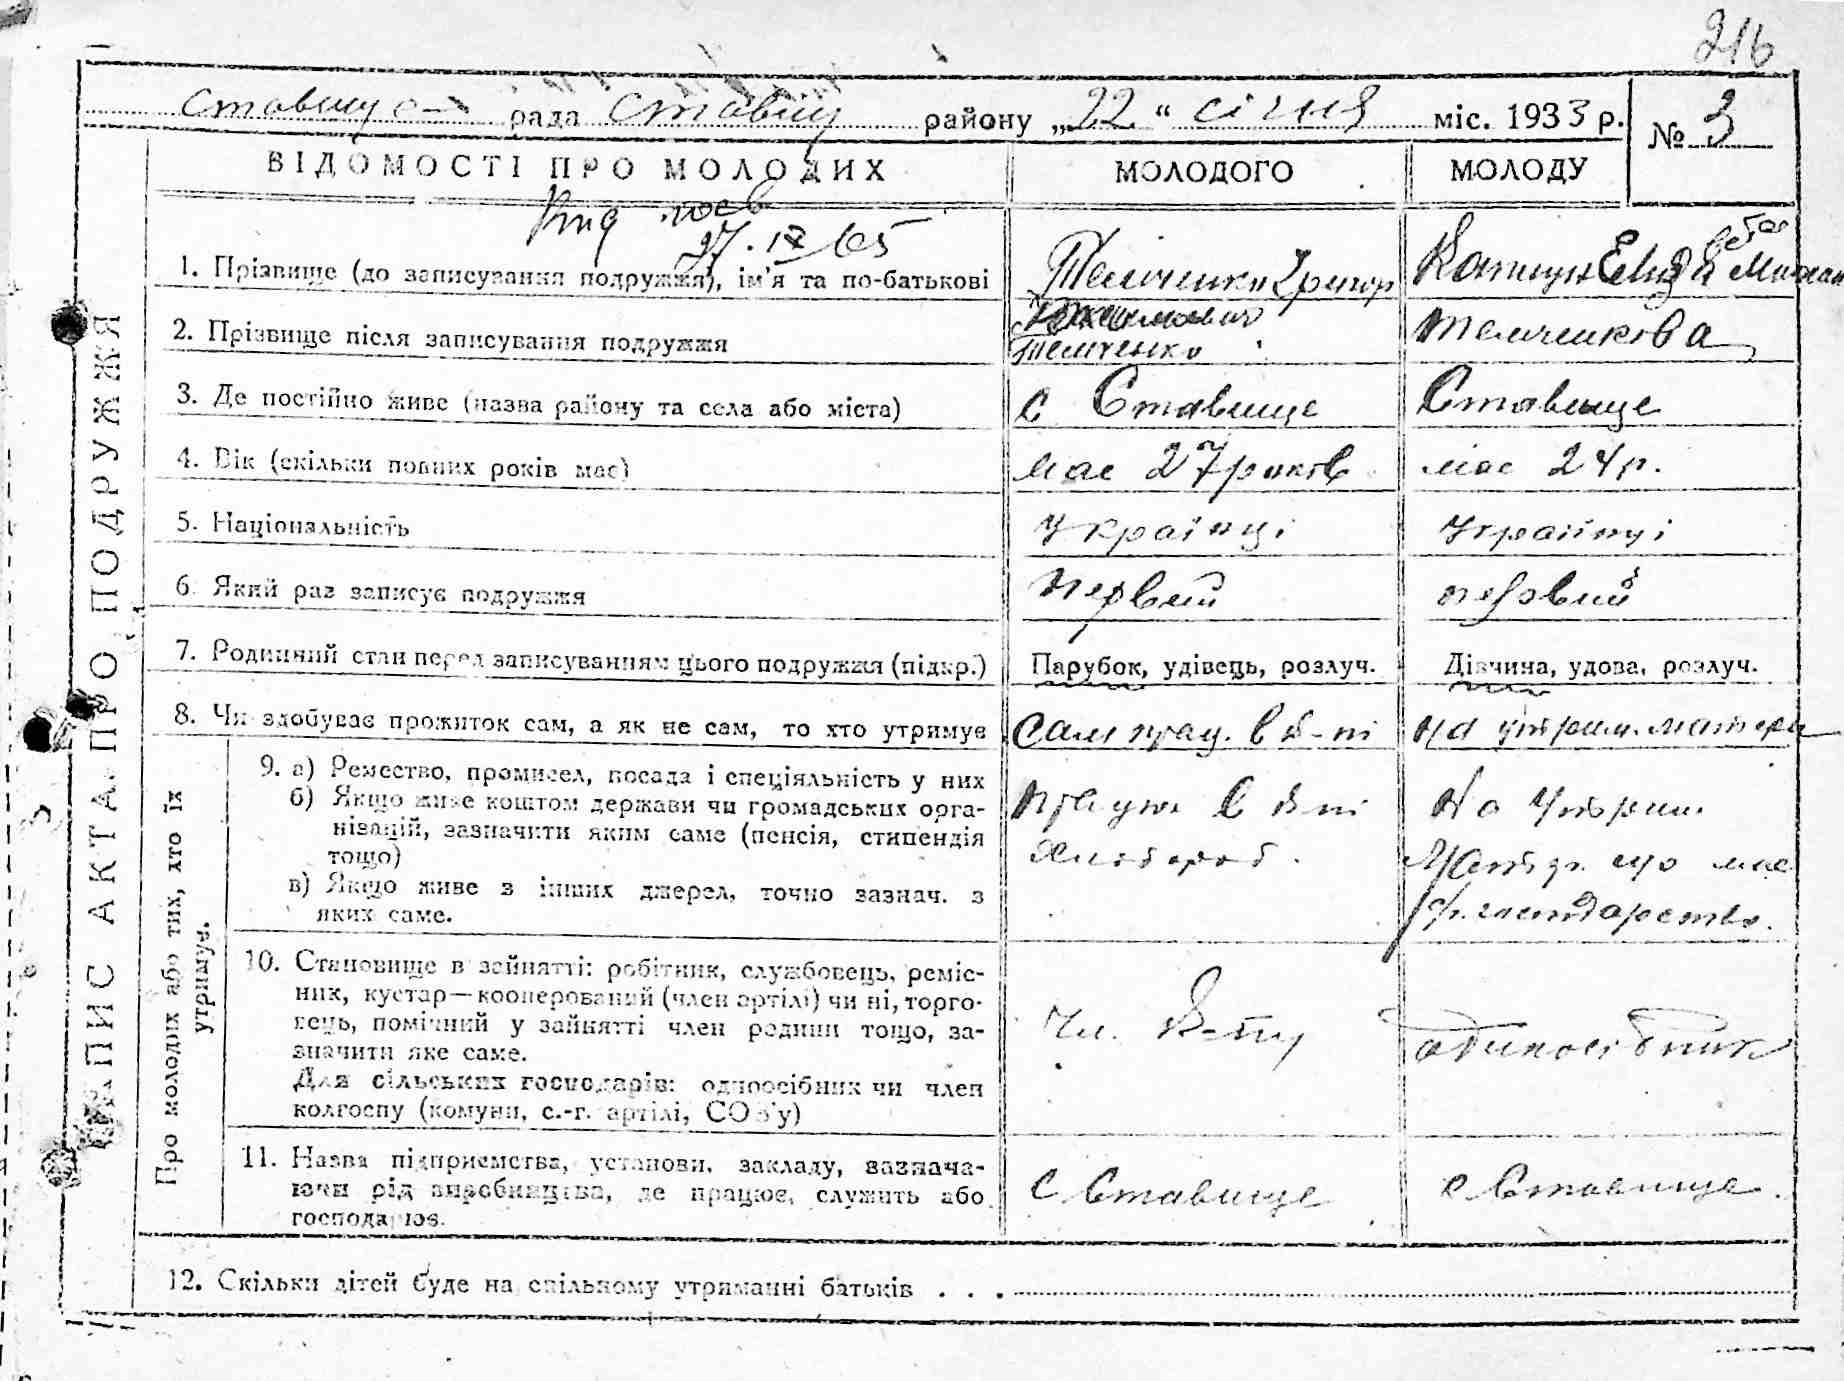 216
Ставище рада Ставищ району „22“ січня міс. 1933 р. № 3
ВІДОМОСТІ ПРО МОЛОДИХ МОЛОДОГО МОЛОДУ
27.IX 65
1. Прізвище (до записування подружжя), ім'я та по-батькові Теличенко Григор
2. Прізвище після записування подружжя Теличенко Теличенкова
3. Де постійно живе (назва району та села або міста) с Ставище Ставище
4. Вік (скільки повних років має) має 27 років має 24 р.
5. Національність Українці Українці
6. Який раз записує подружжя первий первий
7. Родинний стан перед записуванням цього подружжя (підкр.) Парубок, удівець, розлуч. Дівчина, удова, розлуч.
8. Чи здобуває прожиток сам, а як не сам, то хто утримує Сам прац. в к-пі на утрим. матери
ЗАПИС АКТА ПРО ПОДРУЖЖЯ
Про молодих або тих, хто їх утримує.
9. а) Ремество, промисел, посада і спеціяльність у них
б) Якщо живе коштом держави чи громадських орга-
нізацій, зазначити яким саме (пенсія, стипендія
тощо)
в) Якщо живе з інших джерел, точно зазнач. з
яких саме.
працює в к-пі
хлібороб.
на утрим.
матери що має
господарство.
10. Становище в зайнятті: робітник, службовець, реміс-
ник, кустар—кооперований (член артілі) чи ні, торго-
вець, помічний у зайнятті член родини тощо, за-
значити яке саме.
Для сільських господарів: одноосібник чи член
колгоспу (комуни, с.-г. артілі, СОЗ'у)
Чл. к-пу
одиносібник
11. Назва підприємства, установи, закладу, зазнача-
ючи рід виробництва, де працює, служить або
господарює.
с Ставище
с Ставище.
12. Скільки дітей буде на спільному утриманні батьків . . .